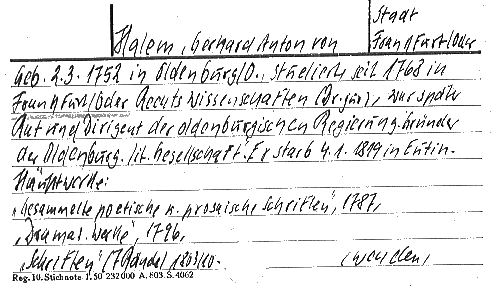 Halem, Gerhard Anton von
Stadt
Frankfurt/Oder
Geb. 2.3.1752 in Oldenburg/O., studierte seit 1768 in
Frankfurt/Oder Rechtswissenschaften (Dr.jur), war später
Rat und Dirigent der oldenburgischen Regierung. Gründer
der Oldenburg. "lit. Gesellschaft". Er starb 4.1.1819 in Eutin.
Hauptwerke:
"Gesammelte poetische u. prosaische Schriften", 1787,
"Dramat. Werke", 1796,
"Schriften" (7 Bände) 1803/10.
(wenden)
Reg. 10. Stichnote 1. 50 232 000 A. 803. S. 4062